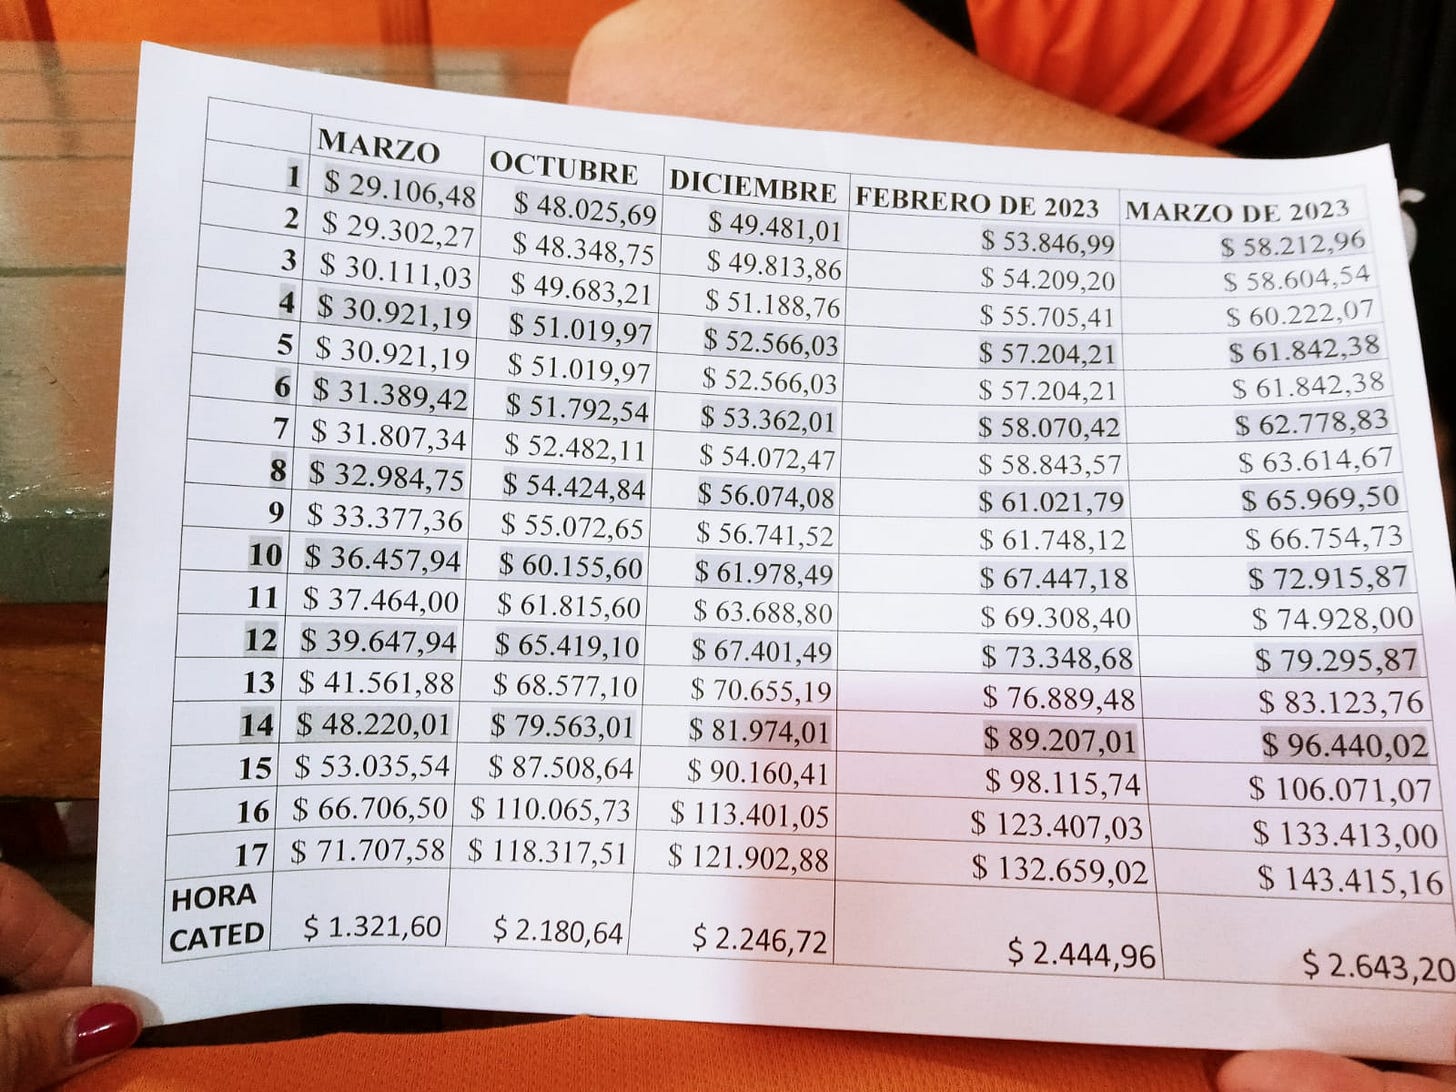 MARZO OCTUBRE DICIEMBRE FEBRERO DE 2023 MARZO DE 2023
1 $ 29.106,48 $ 48.025,69 $ 49.481,01 $ 53.846,99 $ 58.212,96
2 $ 29.302,27 $ 48.348,75 $ 49.813,86 $ 54.209,20 $ 58.604,54
3 $ 30.111,03 $ 49.683,21 $ 51.188,76 $ 55.705,41 $ 60.222,07
4 $ 30.921,19 $ 51.019,97 $ 52.566,03 $ 57.204,21 $ 61.842,38
5 $ 30.921,19 $ 51.019,97 $ 52.566,03 $ 57.204,21 $ 61.842,38
6 $ 31.389,42 $ 51.792,54 $ 53.362,01 $ 58.070,42 $ 62.778,83
7 $ 31.807,34 $ 52.482,11 $ 54.072,47 $ 58.843,57 $ 63.614,67
8 $ 32.984,75 $ 54.424,84 $ 56.074,08 $ 61.021,79 $ 65.969,50
9 $ 33.377,36 $ 55.072,65 $ 56.741,52 $ 61.748,12 $ 66.754,73
10 $ 36.457,94 $ 60.155,60 $ 61.978,49 $ 67.447,18 $ 72.915,87
11 $ 37.464,00 $ 61.815,60 $ 63.688,80 $ 69.308,40 $ 74.928,00
12 $ 39.647,94 $ 65.419,10 $ 67.401,49 $ 73.348,68 $ 79.295,87
13 $ 41.561,88 $ 68.577,10 $ 70.655,19 $ 76.889,48 $ 83.123,76
14 $ 48.220,01 $ 79.563,01 $ 81.974,01 $ 89.207,01 $ 96.440,02
15 $ 53.035,54 $ 87.508,64 $ 90.160,41 $ 98.115,74 $ 106.071,07
16 $ 66.706,50 $ 110.065,73 $ 113.401,05 $ 123.407,03 $ 133.413,00
17 $ 71.707,58 $ 118.317,51 $ 121.902,88 $ 132.659,02 $ 143.415,16
HORA
CATED $ 1.321,60 $ 2.180,64 $ 2.246,72 $ 2.444,96 $ 2.643,20